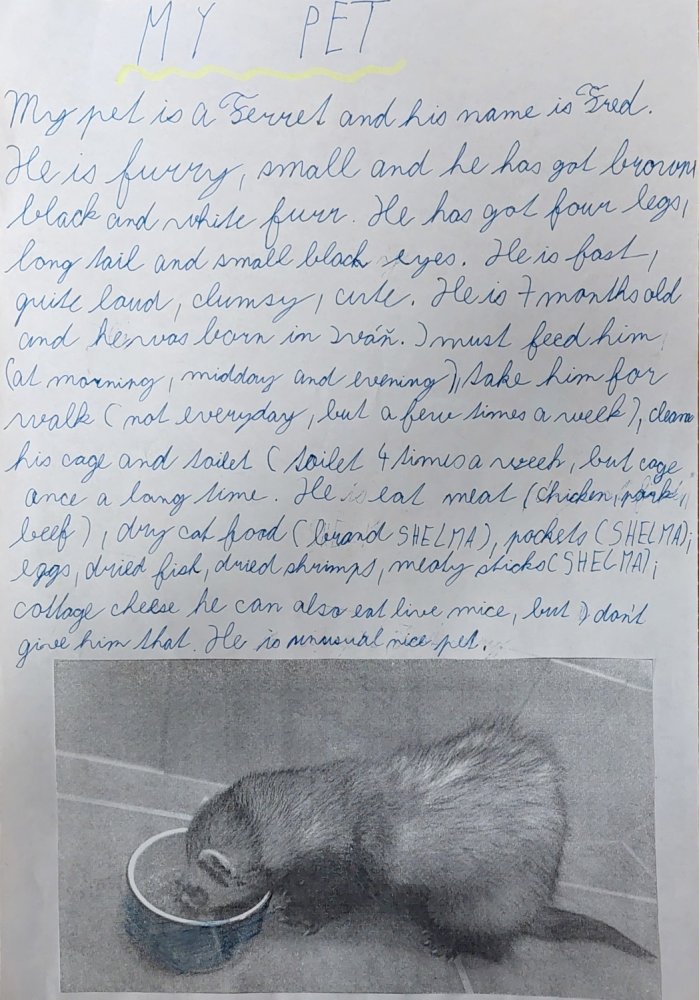 MY PET
My pet is a Ferret and his name is Fred.
He is furry, small and he has got brown
black and white furr. He has got four legs,
long tail and small black eyes. He is fast,
quite loud, clumsy, cute. He is 7 months old
and he was born in Iváň. I must feed him
(at morning, midday and evening), take him for
walk (not everyday, but a few times a week), clean
his cage and toilet (toilet 4 times a week, but cage
once a long time. He is eat meat (chicken, pork,
beef), dry cat food (brand SHELMA), pockets (SHELMA),
eggs, dried fish, dried shrimps, meaty sticks (SHELMA),
cottage cheese he can also eat live mice, but I don't
give him that. He is unusual nice pet.